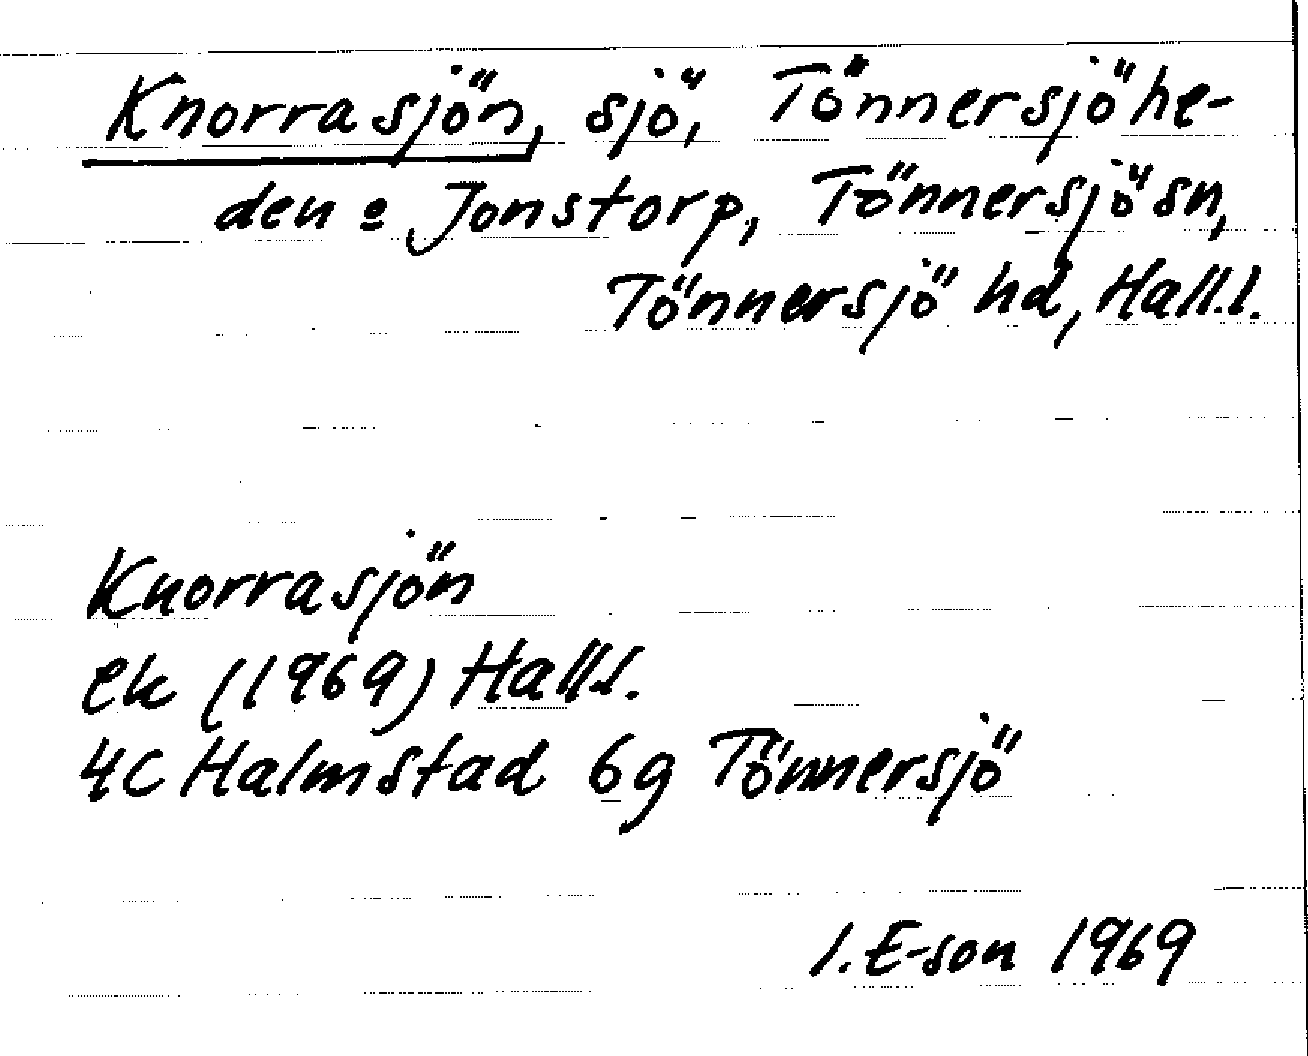 Knorrasjön, sjö, Tönnersjöhe-
den = Jonstorp, Tönnersjö sn,
Tönnersjö hd, Hall.l.
Knorrasjön
ek (1969) Hall.l.
4C Halmstad 6g Tönnersjö
I. E-son 1969